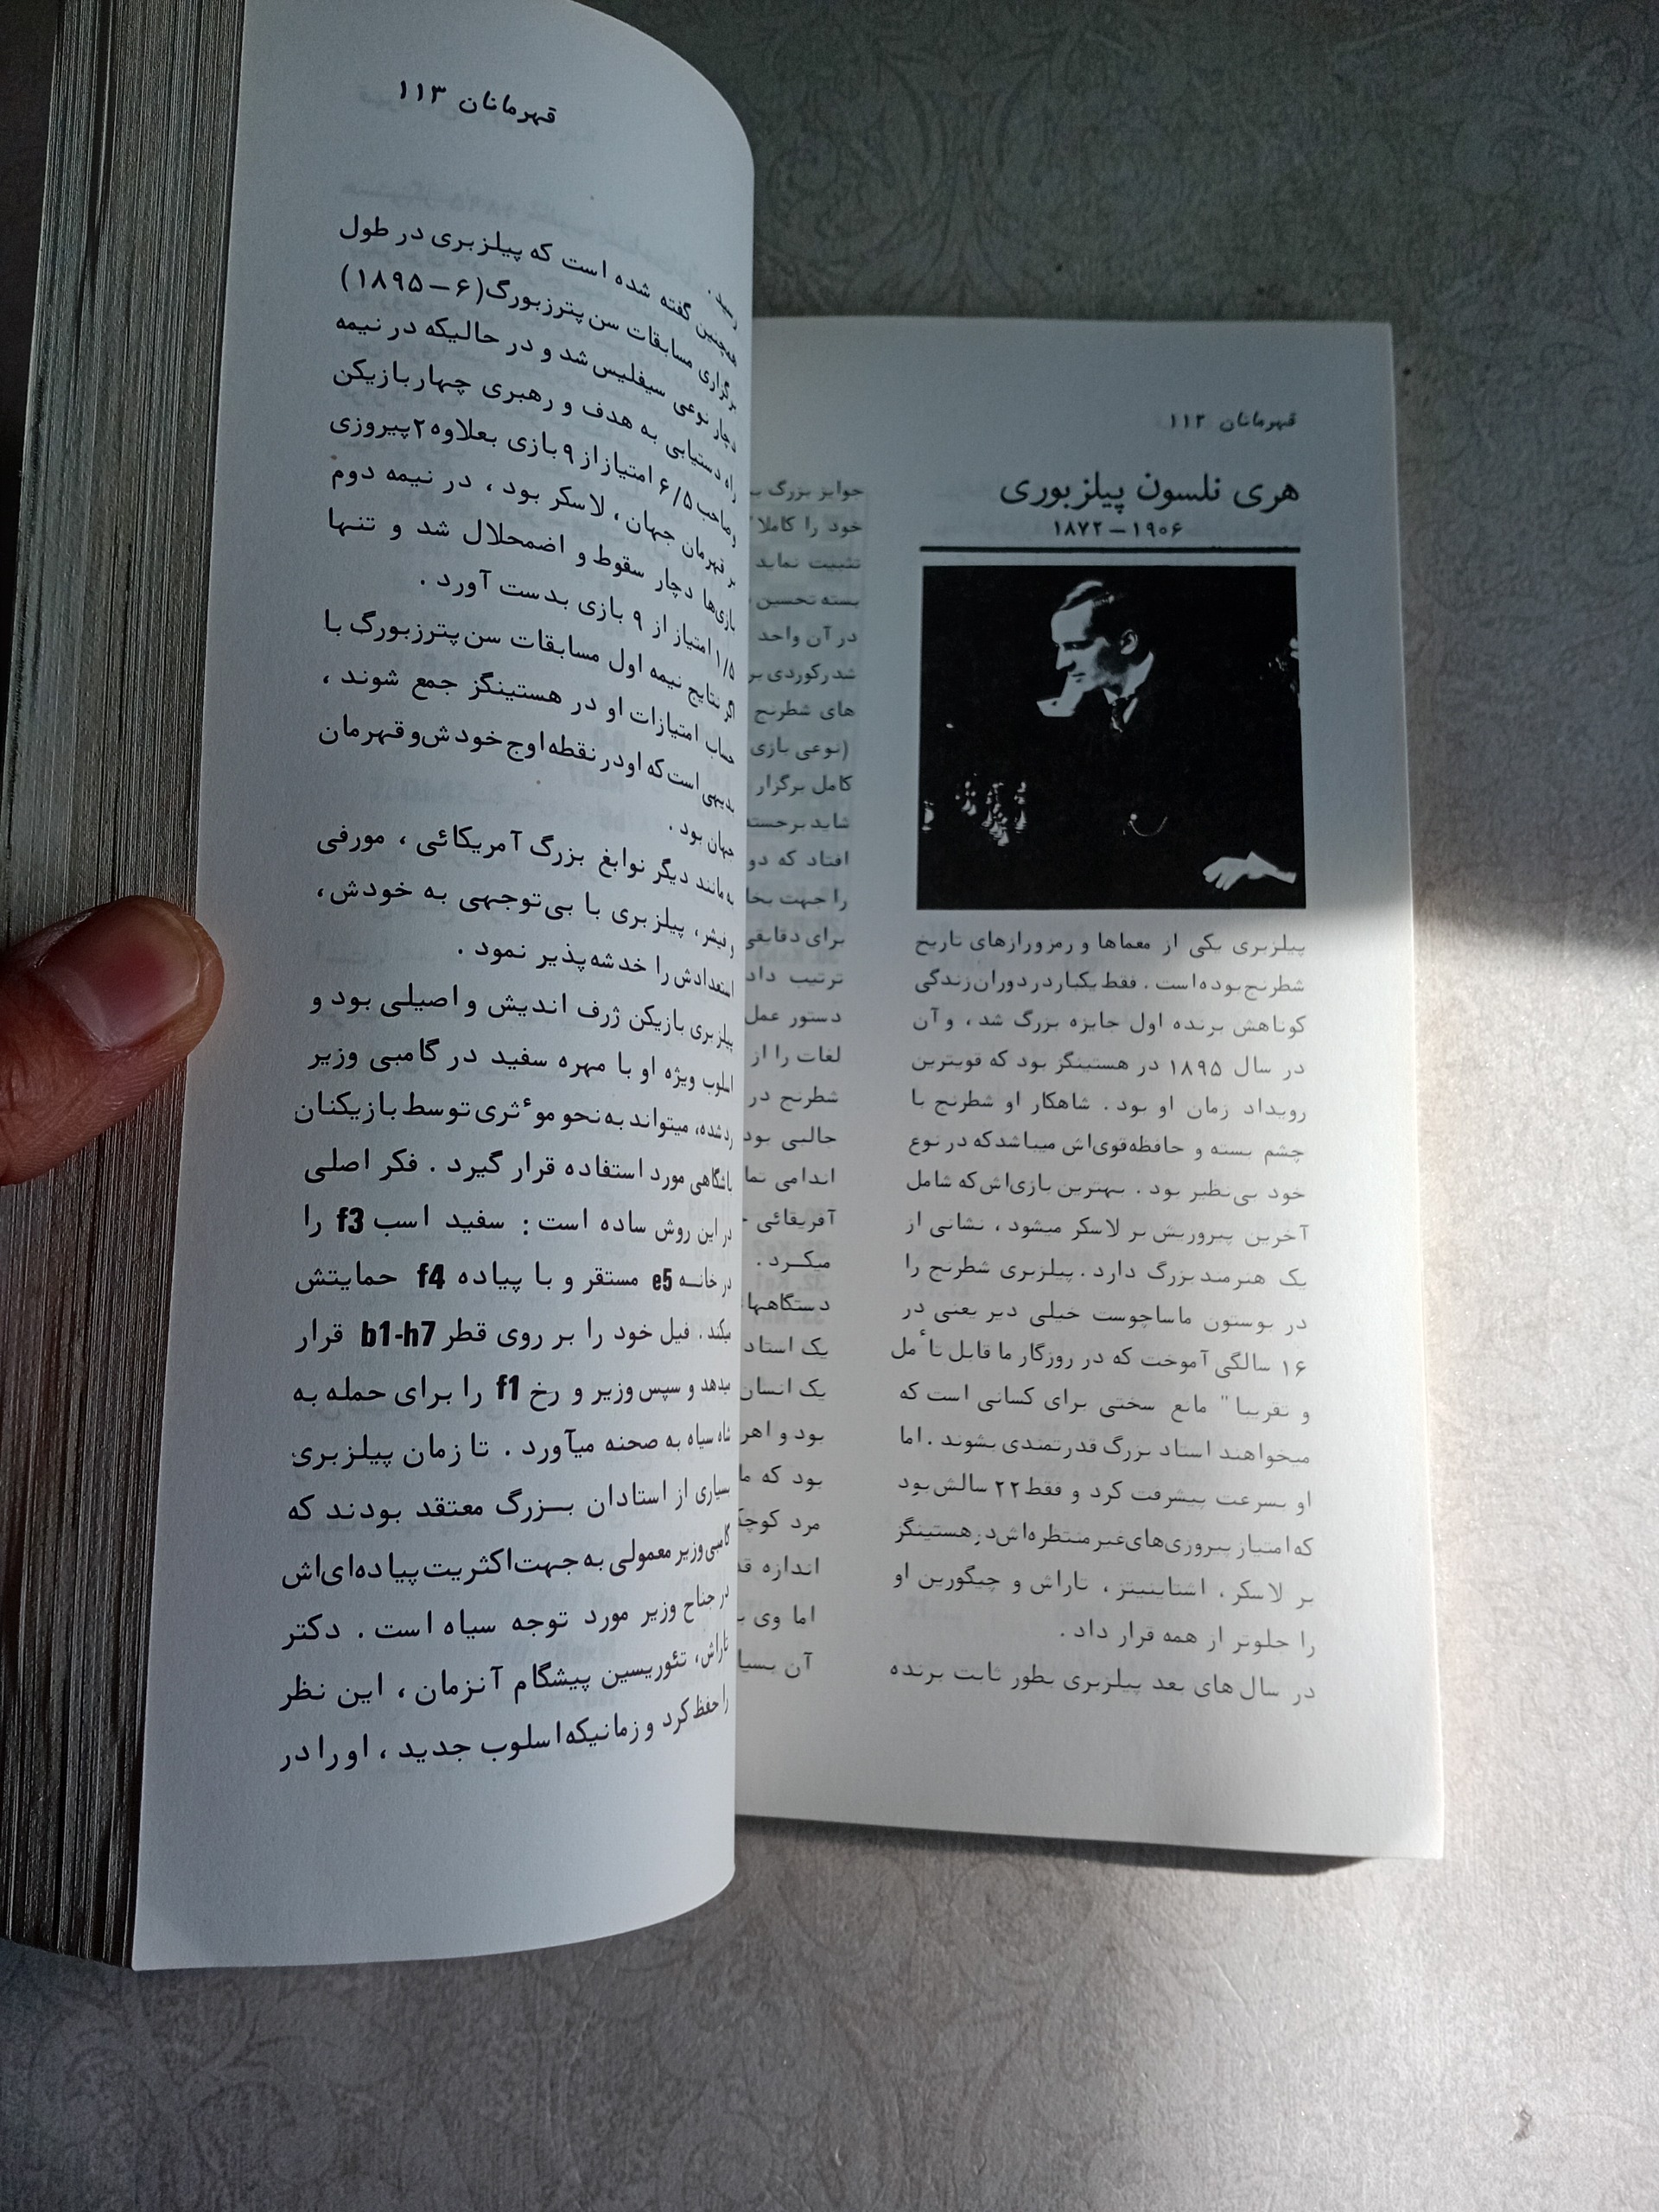 قهرمانان ۱۱۲
هری نلسون پیلزبوری
۱۸۷۲–۱۹۰۶
پیلزبری یکی از معماها و رمزورازهای تاریخ
شطرنج‌بوده‌است . فقط یکبار در دوران زندگی
کوتاهش برنده اول جایزه بزرگ شد ، و آن
در سال ۱۸۹۵ در هستینگز بود که قویترین
رویداد زمان او بود . شاهکار او شطرنج با
چشم بسته و حافظه‌قوی‌اش میباشدکه در نوع
خود بی‌نظیر بود . بهترین بازی‌اش‌که شامل
آخرین پیروزیش بر لاسکر میشود ، نشانی از
یک هنرمند بزرگ دارد . پیلزبری شطرنج را
در بوستون ماساچوست خیلی دیر یعنی در
۱۶ سالگی آموخت که در روزگار ما قابل تأمل
و تقریبا" مانع سختی برای کسانی است که
میخواهند استاد بزرگ قدرتمندی بشوند . اما
او بسرعت پیشرفت کرد و فقط ۲۲ سالش بود
که امتیاز پیروزی‌های‌غیر منتظره‌اش‌در هستینگز
بر لاسکر ، اشتاینیتز ، تاراش و چیگورین او
را جلوتر از همه قرار داد .
در سال های بعد پیلزبری بطور ثابت برنده
جوایز بزرگ
خود را کاملا"
تثبیت نماید
بسته تحسین
در آن واحد
شد رکوردی
های شطرنج
(نوعی بازی
کامل برگزار
شاید برجسته
افتاد که دو
را جهت
برای دقایقی
ترتیب داد
دستور عمل
لغات را از
شطرنج در
جالبی بود
اندامی
آفریقائی
میکـرد .
دستگاهها
یک استاد
یک انسان
بود و
بود که
مرد
اندازه
اما وی
آن
قهرمانان ۱۱۳
رسید .
همچنین گفته شده است که پیلزبری در طول
برگزاری مسابقات سن‌پترزبورگ(۶–۱۸۹۵)
دچار نوعی سیفلیس شد و در حالیکه در نیمه
راه دستیابی به هدف و رهبری چهاربازیکن
و صاحب ۶/۵ امتیاز از ۹ بازی بعلاوه ۲ پیروزی
بر قهرمان جهان، لاسکر بود ، در نیمه دوم
بازی‌ها دچار سقوط و اضمحلال شد و تنها
۱/۵ امتیاز از ۹ بازی بدست آورد .
اگر نتایج نیمه اول مسابقات سن‌پترزبورگ با
حساب امتیازات او در هستینگز جمع شوند ،
بدیهی است‌که او در نقطه‌اوج خودش‌و قهرمان
جهان بود .
به مانند دیگر نوابغ بزرگ آمریکائی ، مورفی
و فیشر، پیلزبری با بی‌توجهی به خودش،
استعدادش را خدشه‌پذیر نمود .
پیلزبری بازیکن ژرف اندیش و اصیلی بود و
اسلوب ویژه او با مهره سفید در گامبی وزیر
رد شده، میتواند به‌نحو موٴثری توسط بازیکنان
باشگاهی مورد استفاده قرار گیرد . فکر اصلی
در این روش ساده است : سفید اسب f3 را
در خانـه e5 مستقر و با پیاده f4 حمایتش
میکند . فیل خود را بر روی قطر b1-h7 قرار
میدهد و سپس وزیر و رخ f1 را برای حمله به
شاه سیاه به صحنه میآورد . تا زمان پیلزبری
بسیاری از استادان بـزرگ معتقد بودند که
گامبی وزیر معمولی به جهت‌اکثریت پیاده‌ای‌اش
در جناح وزیر مورد توجه سیاه است . دکتر
تاراش، تئوریسین پیشگام آنزمان ، این نظر
را حفظ کرد و زمانیکه‌اسلوب جدید ، او را در